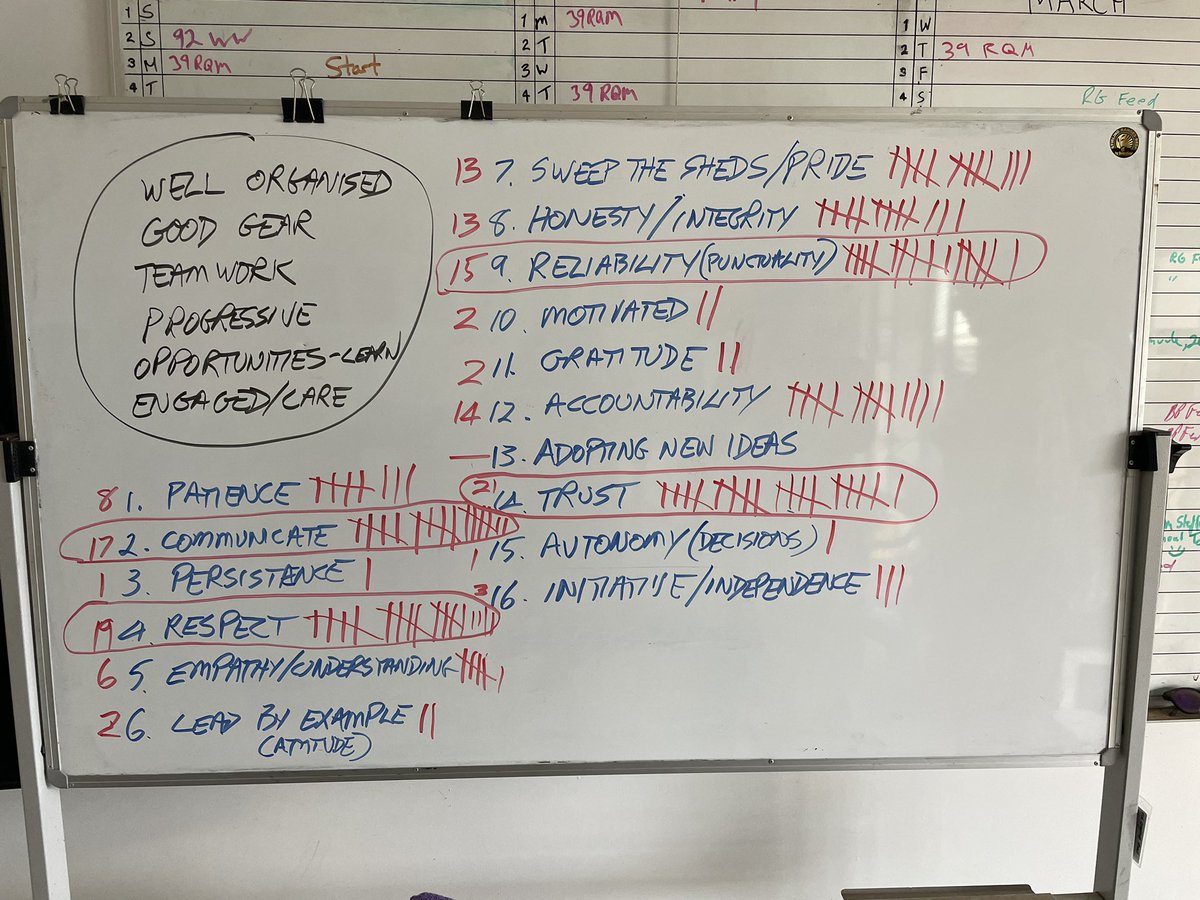 MARCH
1 S
2 S 92 WW
3 M 39 RQM Start
4 T
1 M 39RQM
2 T
3 W
4 T 39 RQM
1 W
2 T 39 RQM
3 F
4 S
RG Feed
WELL ORGANISED
GOOD GEAR
TEAMWORK
PROGRESSIVE
OPPORTUNITIES-LEARN
ENGAGED/CARE
8 1. PATIENCE
17 2. COMMUNICATE
1 3. PERSISTANCE
19 4. RESPECT
6 5. EMPATHY/UNDERSTANDING
2 6. LEAD BY EXAMPLE
(ATTITUDE)
13 7. SWEEP THE SHEDS/PRIDE
13 8. HONESTY/INTEGRITY
15 9. RELIABILITY (PUNCTUALITY)
2 10. MOTIVATED
2 11. GRATITUDE
14 12. ACCOUNTABILITY
— 13. ADOPTING NEW IDEAS
21 14. TRUST
1 15. AUTONOMY (DECISIONS)
3 16. INITIATIVE/INDEPENDENCE